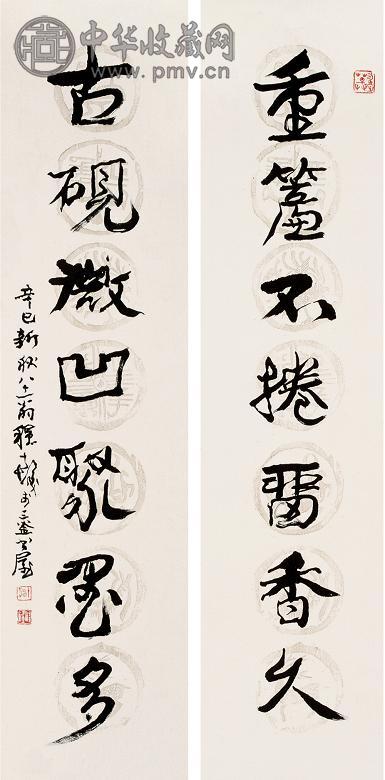 中华收藏网
www.pmv.cn
重簾不捲畱香久
古硯微凹聚墨多
辛巳新秋八十一翁程十髮於三釜書屋